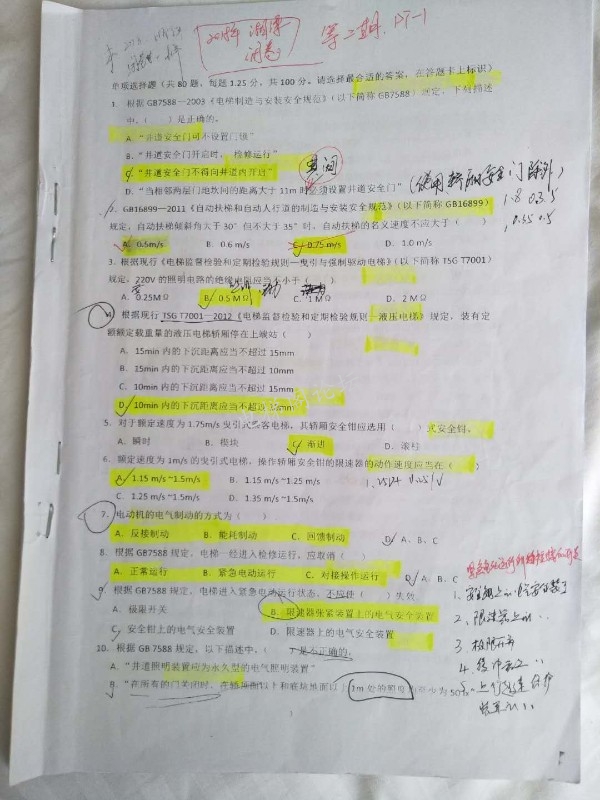 2018年 湘潭 第二期. PT-1
闭卷
单项选择题（共 80 题，每题 1.25 分，共 100 分。请选择最合适的答案，在答题卡上标识）
1. 根据 GB7588—2003《电梯制造与安装安全规范》（以下简称 GB7588）规定，下列描述
中，（ ）是正确的。
A. “井道安全门可不设置门锁”
B. “井道安全门开启时， 检修运行”
C. “井道安全门不得向井道内开启”
D. “当相邻两层门地坎间的距离大于 11m 时必须设置井道安全门”
(使用轿厢安全门除外)
2. GB16899—2011《自动扶梯和自动人行道的制造与安装安全规范》（以下简称 GB16899）
规定，自动扶梯倾斜角大于 30° 但不大于 35° 时，自动扶梯的名义速度不应大于（ ）
A. 0.5m/s B. 0.6 m/s C. 0.75 m/s D. 1.0 m/s
3. 根据现行《电梯监督检验和定期检验规则—曳引与强制驱动电梯》（以下简称 TSG T7001）
规定，220V 的照明电路的绝缘电阻应当不小于（ ）
A. 0.25MΩ B. 0.5 MΩ C. 1 MΩ D. 2 MΩ
4. 根据现行 TSG T7001—2012《电梯监督检验和定期检验规则—液压电梯》规定，装有定
额额定载重量的液压电梯轿厢停在上端站（ ）
A. 15min 内的下沉距离应当不超过 15mm
B. 15min 内的下沉距离应当不超过 10mm
C. 10min 内的下沉距离应当不超过 15mm
D. 10min 内的下沉距离应当不超过 10mm
5. 对于额定速度为 1.75m/s 曳引式乘客电梯，其轿厢安全钳应选用（ ）式安全钳。
A. 瞬时 B. 楔块 C. 渐进 D. 滚柱
6. 额定速度为 1m/s 的曳引式电梯，操作轿厢安全钳的限速器的动作速度应当在（ ）
A. 1.15 m/s ~1.5m/s B. 1.15 m/s ~1.25 m/s
C. 1.25 m/s ~1.5m/s D. 1.35 m/s ~1.5m/s
7. 电动机的电气制动的方式为（ ）
A. 反接制动 B. 能耗制动 C. 回馈制动 D. A、B、C
8. 根据 GB7588 规定，电梯一经进入检修运行，应取消（ ）
A. 正常运行 B. 紧急电动运行 C. 对接操作运行 D. A、B、C
9. 根据 GB7588 规定，电梯进入紧急电动运行状态，不应使（ ）失效
A. 极限开关 B. 限速器张紧装置上的电气安全装置
C. 安全钳上的电气安全装置 D. 限速器上的电气安全装置
2、限速器上的..
3 极限开关
4. 缓冲器上..
10. 根据 GB 7588 规定，以下描述中，（ ）是不正确的。
A. “井道照明装置应为永久型的电气照明装置”
B. “在所有的门关闭时，在轿顶面以上和底坑地面以上 1m 处的照度 至少为 50